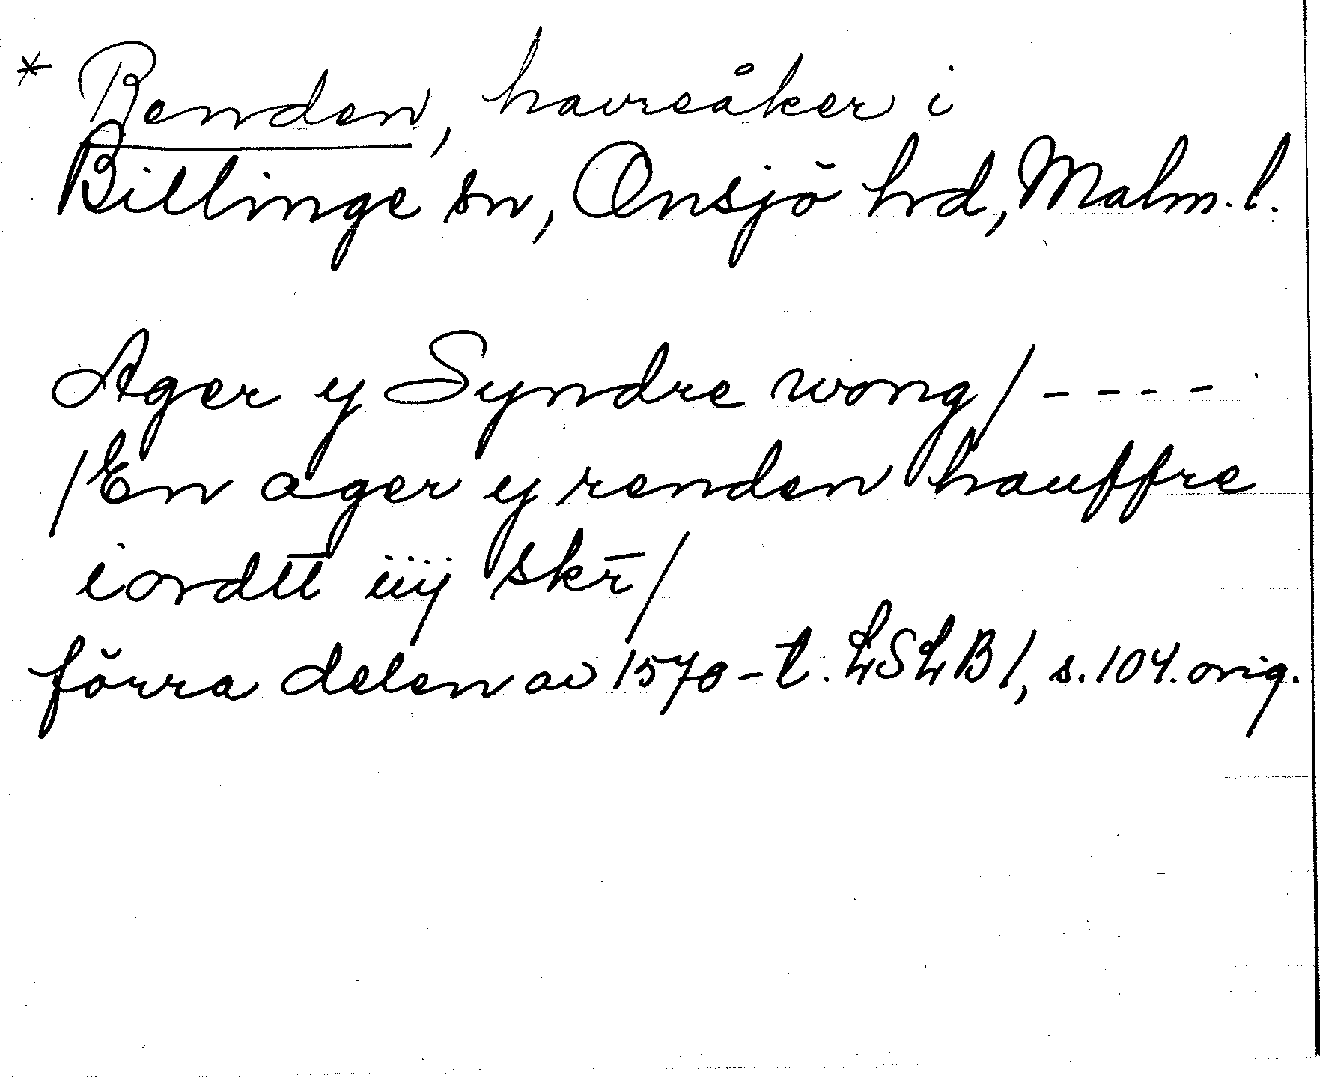 * Renden, havreåker i
Billinge sn, Onsjö hrd, Malm. l.
Ager y Syndre wong/----
/En ager y renden hauffre
iordtt iiij skr̄/
förra delen av 1570-t. LSLB 1, s. 104. orig.